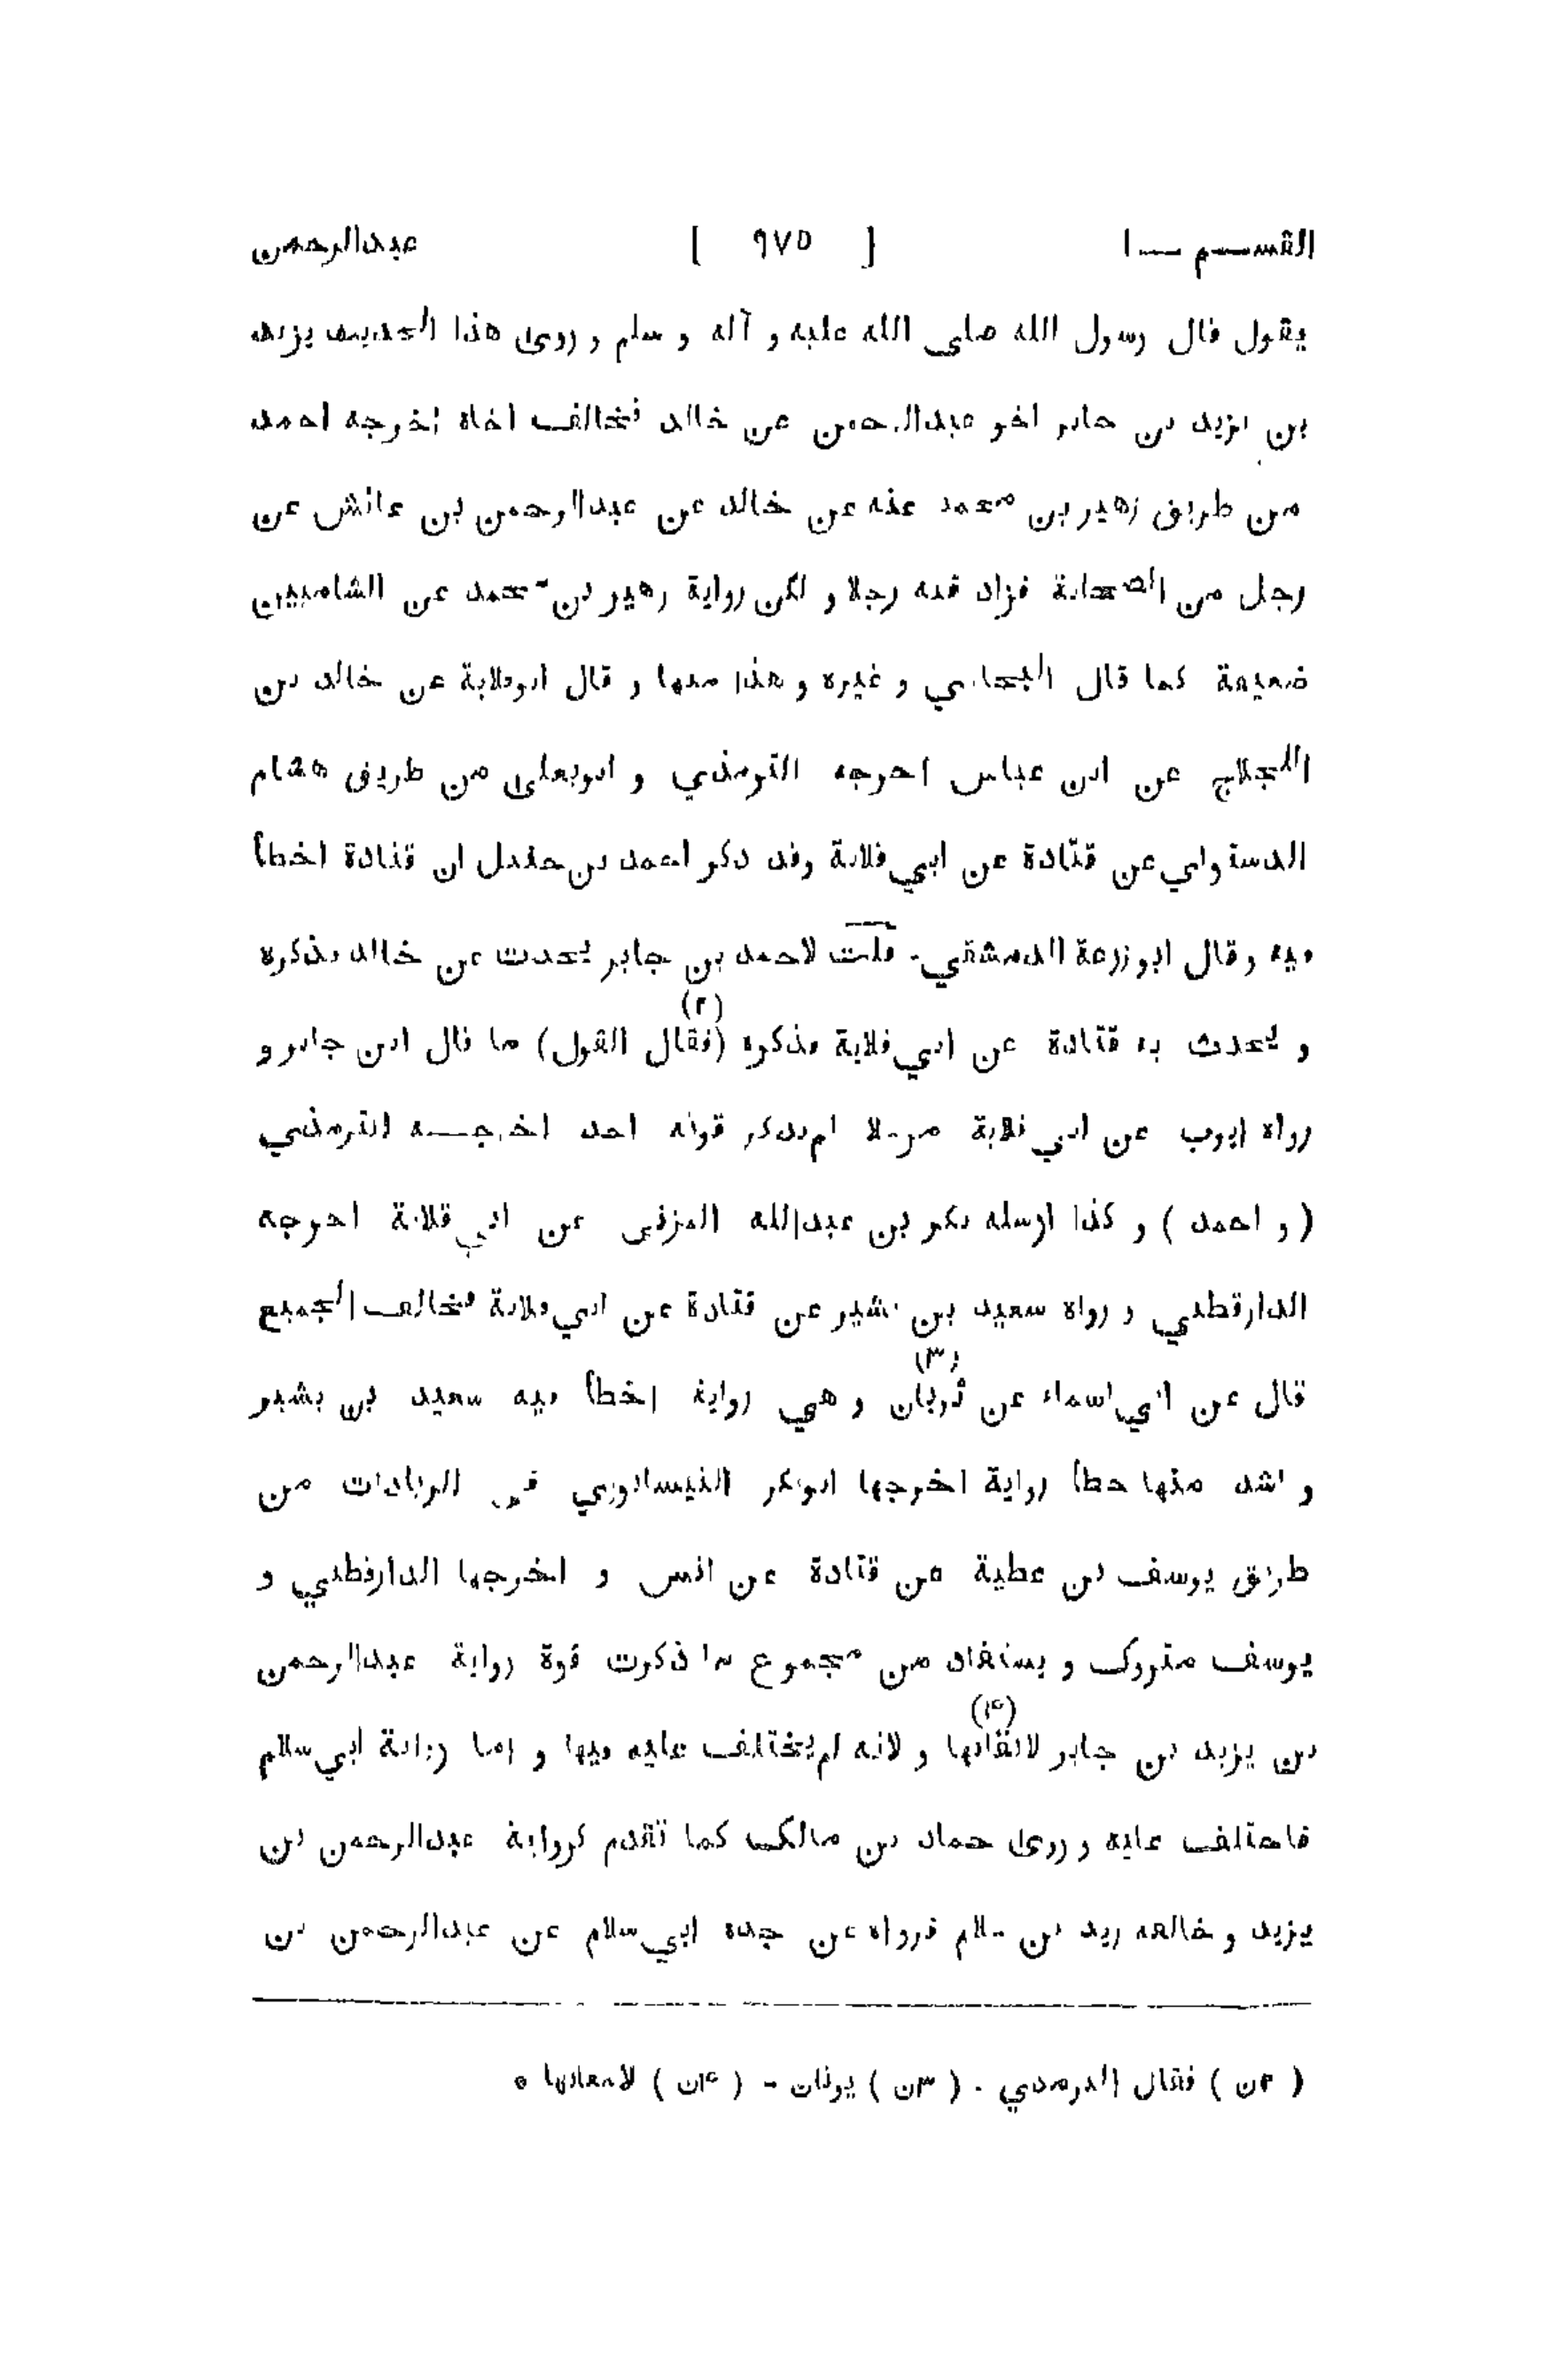 القســم ــ ١ [ ٩٧٥ ] عبدالرحمن
يقول قال رسول الله صلى الله عليه و آله و سلم و روى هذا الحديث يزيد
بن يزيد بن جابر اخو عبدالرحمن عن خالد فخالف اخاه اخرجه احمد
من طريق زهير بن محمد عنه عن خالد عن عبدالرحمن بن عائش عن
رجل من الصحابة فزاد فيه رجلا و لكن رواية زهير بن محمد عن الشاميين
ضعيفة كما قال البخاري و غيره و هذا منها و قال ابوقلابة عن خالد بن
اللجلاج عن ابن عباس اخرجه الترمذي و ابويعلى من طريق هشام
الدستوايي عن قتادة عن ابي قلابة وقد ذكر احمد بن حنبل ان قتادة اخطأ
فيه وقال ابو زرعة الدمشقي - قلت لاحمد بن جابر يحدث عن خالد فذكره
و يحدث به قتادة عن ابي قلابة فذكره (فقال القول) (٢) ما قال ابن جابر و
رواه ايوب عن ابي قلابة مرسلا لم يذكر فوقه احد اخرجــه الترمذي
( و احمد ) و كذا ارسله بكر بن عبدالله المزني عن ابي قلابة اخرجه
الدارقطني و رواه سعيد بن بشير عن قتادة عن ابي قلابة فخالف الجميع
قال عن ابي اسماء عن ثربان (٣) و هي رواية اخطأ فيه سعيد بن بشير
و اشد منها خطأ رواية اخرجها ابوبكر النيسابوري في الزيادات من
طريق يوسف بن عطية عن قتادة عن انس و اخرجها الدارقطني و
يوسف متروك و يستفاد من مجموع ما ذكرت قوة رواية عبدالرحمن
بن يزيد بن جابر لاتقانها (۴) و لانه لم يختلف عليه فيها و اما رواية ابي سلام
فاختلف عليه و روى حماد بن مالك كما تقدم كرواية عبدالرحمن بن
يزيد و خالفه زيد بن سلام فرواه عن جده ابي سلام عن عبدالرحمن بن
( ٢ن ) فقال الترمذي - ( ٣ن ) يونان - ( ۴ن ) لامعانها *